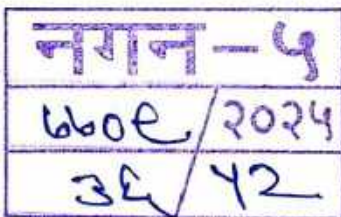 नगन-५
७७०९/२०२५
३६/५२